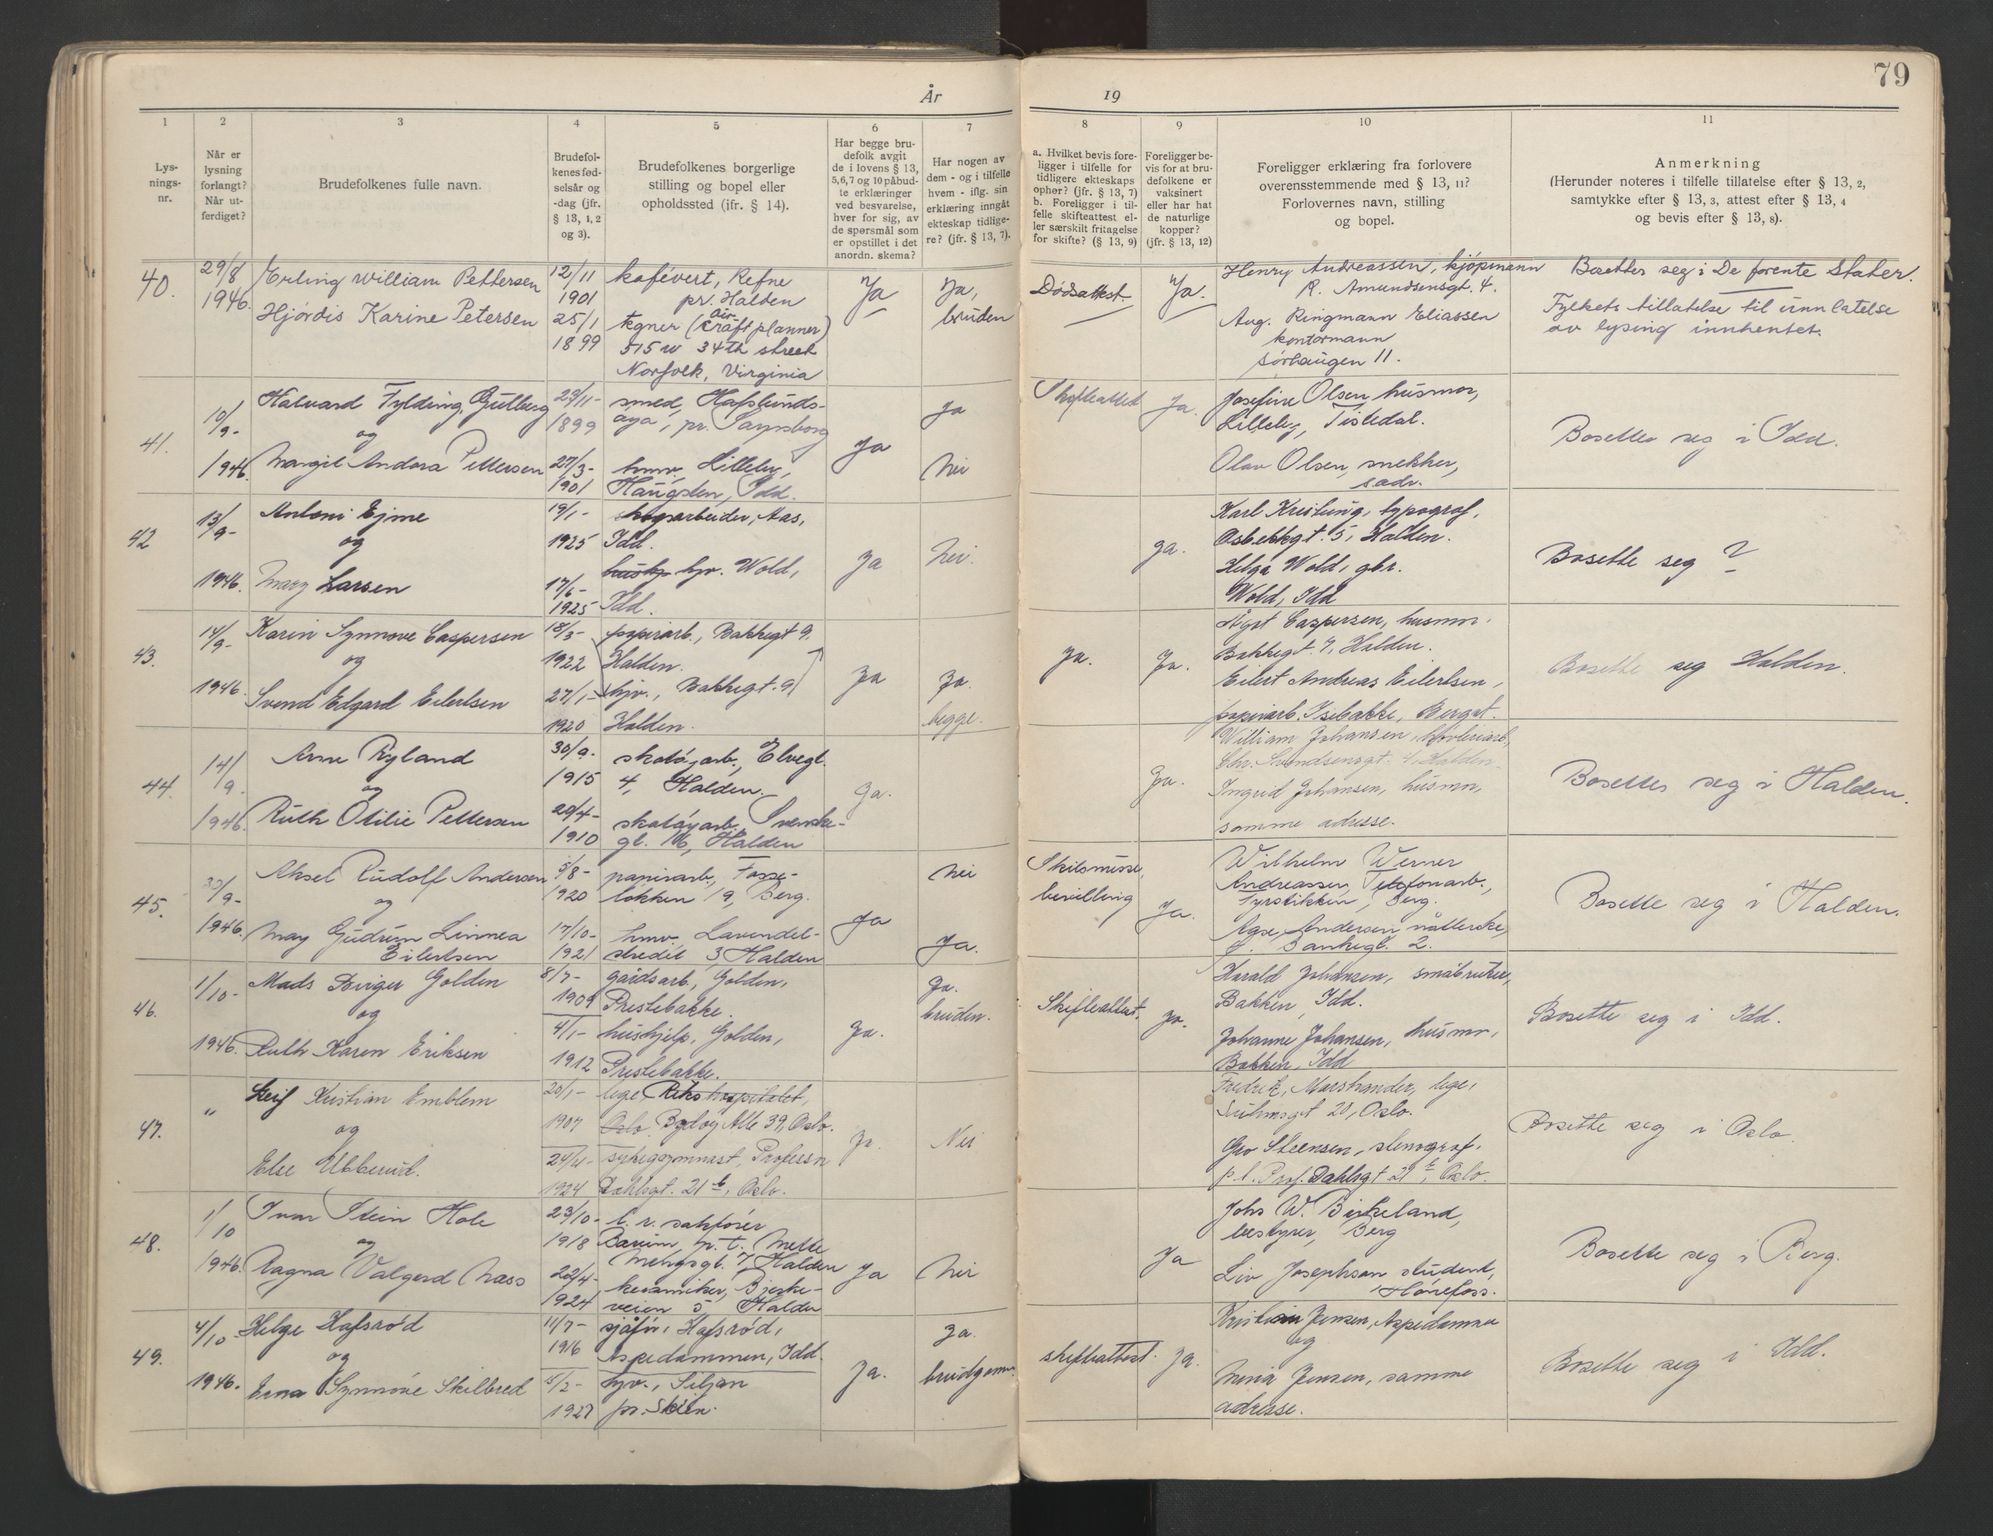 År 19
79
1 2 3 4 5 6 7 8 9 10 11
Lys-
nings-
nr.
Når er
lysning
forlangt?
Når ut-
ferdiget?
Brudefolkenes fulle navn.
Brudefol-
kenes fød-
selsår og
-dag (jfr.
§ 13, 1, 2
og 3).
Brudefolkenes borgerlige
stilling og bopel eller
opholdssted (jfr. § 14).
Har begge bru-
defolk avgit
de i lovens § 13,
5,6,7 og 10 påbud-
te erklæringer
ved besvarelse,
hver for sig, av
de spørsmål som
er opstillet i det
anordn. skema?
Har nogen av
dem - og i tilfelle
hvem - iflg. sin
erklæring inngått
ekteskap tidlige-
re? (jfr. § 13, 7).
a. Hvilket bevis fore-
ligger i tilfelle for
tidligere ekteskaps
ophør? (jfr. § 13, 7)
b. Foreligger i til-
felle skifteattest el-
ler særskilt fritagelse
for skifte? (§ 13, 9)
Foreligger be-
vis for at bru-
defolkene er
vaksinert
eller har hat
de naturlige
kopper?
(jfr. § 13, 12)
Foreligger erklæring fra forlovere
overensstemmende med § 13, 11?
Forlovernes navn, stilling
og bopel.
Anmerkning
(Herunder noteres i tilfelle tillatelse efter § 13, 2,
samtykke efter § 13, 3, attest efter § 13, 4
og bevis efter § 13, 8).
40.
29/8
1946.
Erling William Pettersen
Hjørdis Karine Petersen
12/11
1901
25/1
1899
kafévert, Refne
pr. Halden
tegner (aircraft planner)
515 w 34th street
Norfolk, Virginia
Ja
Ja,
bruden
Dødsattest
Ja.
Henry Andreassen, kjøpmann
R. Amundsensgt. 4.
Aug. Ringmann Eliassen
kontormann
Sørhaugen 11.
Bosetter seg i De forente Stater.
Fylkets tillatelse til unnlatelse
av lysing innhentet.
41.
10/9-
1946.
Halvard Fylding Gulberg
og
Margit Andora Pettersen
23/11-
1899
27/3-
1901
smed, Hafslunds-
øya, pr. Sarpsborg
hmv, Lilleby,
Haugsten, Idd.
Ja
Ja
Nei
Skifteattest
Ja.
Josefine Olsen, husmor,
Lilleby, Tistedal.
Olav Olsen, snekker,
sadr.
Bosetter seg i Idd.
42
13/9-
1946.
Antoni Ejme
og
Mary Larsen
19/1-
1925
17/6-
1925
skogsarbeider, Aas,
Idd.
hushj. hjv. Wold,
Idd.
Ja
Nei.
Ja.
Karl Kristing, typograf,
Osbekkgt. 5, Halden.
Helga Wold, gbr.
Wold, Idd
Bosette seg ?
43.
14/9-
1946.
Karin Synnøve Caspersen
og
Svend Edgard Eilertsen
18/3-
1922
27/1-
1920
papirarb., Bakkegt 9,
Halden.
hjv., Bakkegt. 9
Halden.
Ja
Ja.
begge.
Ja.
Ja.
Caspersen, husmor.
Bakkegt 9, Halden.
Eilert Andreas Eilertsen,
papirarb. Isebakke, Berg st.
Bosette seg Halden.
44.
14/9.
1946.
Arne Ryland
og
Ruth Otilie Pettersen
30/9.
1915
29/4-
1910
skotøyarb., Elvegt.
4, Halden.
skotøyarb. Svenske-
gt. 16, Halden
Ja.
Ja.
William Johansen,
Chr. Svendsensgt. 4, Halden.
Ingrid Johansen, husmor,
samme adresse.
Bosettes seg i Halden.
45.
30/9-
1946.
Aksel Rudolf Andersen
og
May Gudrun Linnea
Eilertsen
5/8-
1920
17/10-
1921
papirarb., Fosse-
løkken 19, Berg.
hmv, Lavendel-
stredit 3 Halden
Ja
Nei
Ja.
Skilsmisse,
bevilling
Ja.
Wilhelm Werner
Andreassen, Telefonarb.,
Fyrstikken, Berg.
Andersen
2.
Bosette seg i Halden.
46.
1/10-
1946.
Mads Birger Golden
og
Ruth Karen Eriksen
8/7-
1909
4/1-
1912
gårdsarb., Golden,
Prestebakke.
hushjelp, Golden,
Prestebakke.
Ja.
Ja.
bruden.
Skifteattest.
Ja.
Harald Johansen, småbruker,
Bakken, Idd.
Johanne Johansen, husmor,
Bakken, Idd
Bosette seg i Idd.
47.
"
Leif Kristian Emblem
og
Else Ubberud.
20/1-
1907
24/4-
1924
lege, Rikshospitalet,
Oslo. Bygdøy Alle 39, Oslo.
sykegymnast, Professor
Dahlsgt. 21 b, Oslo.
Ja.
Nei
Fredrik Marstrander, lege,
Suhmsgt 20, Oslo.
Gro Steensen, stenograf,
p.t. Prof. Dahlsgt 21 b, Oslo.
Bosette seg i Oslo.
48.
1/10
1946.
Ivar Stein Hole
og
Ragna Valgerd Næss
23/10-
1918
22/4-
1924
l. r. sakfører
Bærum p.t. Mette
Mengsgt. 7, Halden
keramiker, Bjerke-
veien 5 Halden
Ja
Nei
Ja
Johs W. Birkeland,
bestyrer, Berg
Liv Josephson student,
Hønefoss.
Bosette seg i Berg.
49.
4/10
1946.
Helge Hafsrød
og
Erna Synnøve Skilbred
11/7-
1916
5/2-
1927
sjåfør, Hafsrød,
Aspedammen, Idd.
hjv., Siljan
pr. Skien.
Ja.
Ja.
brudgom.
skifteattest.
Ja.
Kristian Jensen, Aspedammen
og
Minia Jensen, samme
adresse.
Bosette seg i Idd.